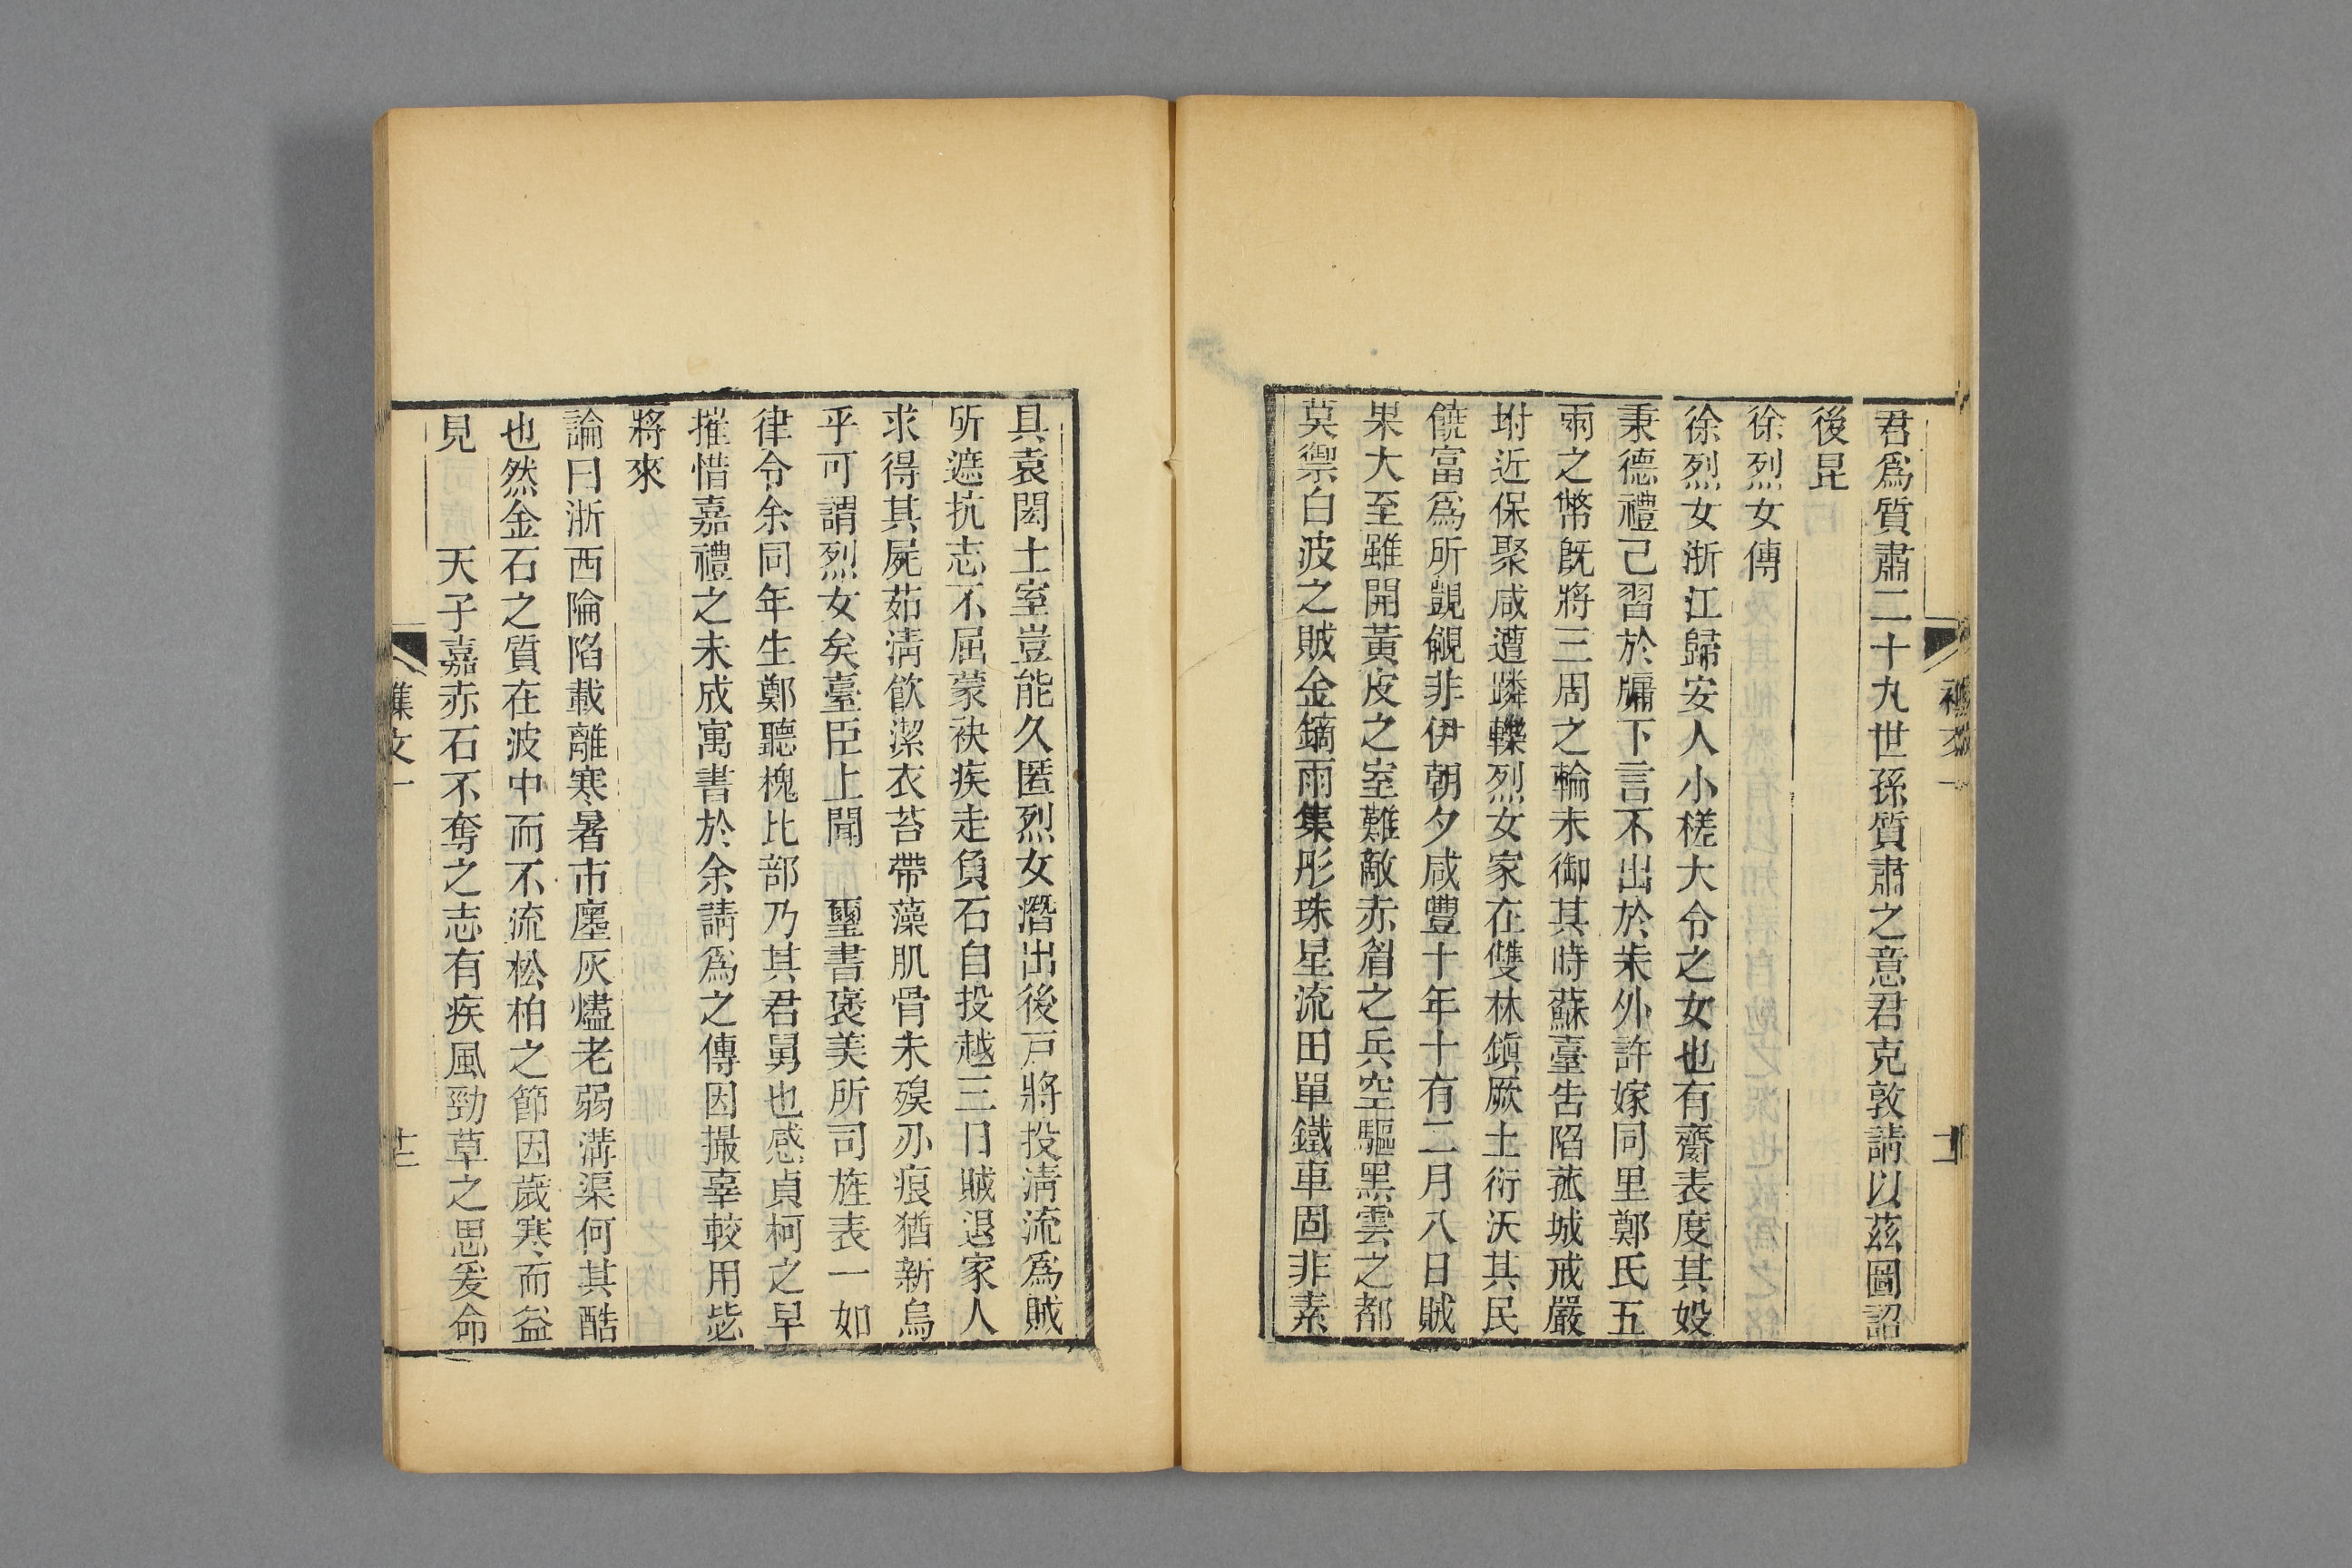 君爲質肅二十九世孫質肅之意君克敦請以茲圖詔
後昆
徐烈女傳
徐烈女浙江歸安人小槎大令之女也有齋表度其娞
秉德禮己習於牖下言不出於朱外許嫁同里鄭氏五
兩之幣旣將三周之輪未御其時蘇臺告陷菰城戒嚴
坿近保聚咸遭蹸轢烈女家在雙林鎮厥土衍沃其民
饒富爲所覬覦非伊朝夕咸豐十年十有二月八日賊
果大至雖開黃皮之室難敵赤眉之兵空驅黑雲之都
莫禦白波之賊金鏑雨集彤珠星流田單鐵車固非素
具袁閎土室豈能久匿烈女潛出後戸將投清流爲賊
所遮抗志不屈蒙袂疾走負石自投越三日賊退家人
求得其屍茹淸飮潔衣苔帶藻肌骨未殠刅痕猶新烏
乎可謂烈女矣臺臣上聞 璽書褒美所司旌表一如
律令余同年生鄭聽槐比部乃其君舅也感貞柯之早
摧惜嘉禮之未成寓書於余請爲之傳因撮辜較用毖
將來
論曰浙西隃陷載離寒暑市廛灰燼老弱溝渠何其酷
也然金石之質在波中而不流松柏之節因歲寒而益
見 天子嘉赤石不奪之志有疾風勁草之思爰命
雜文一